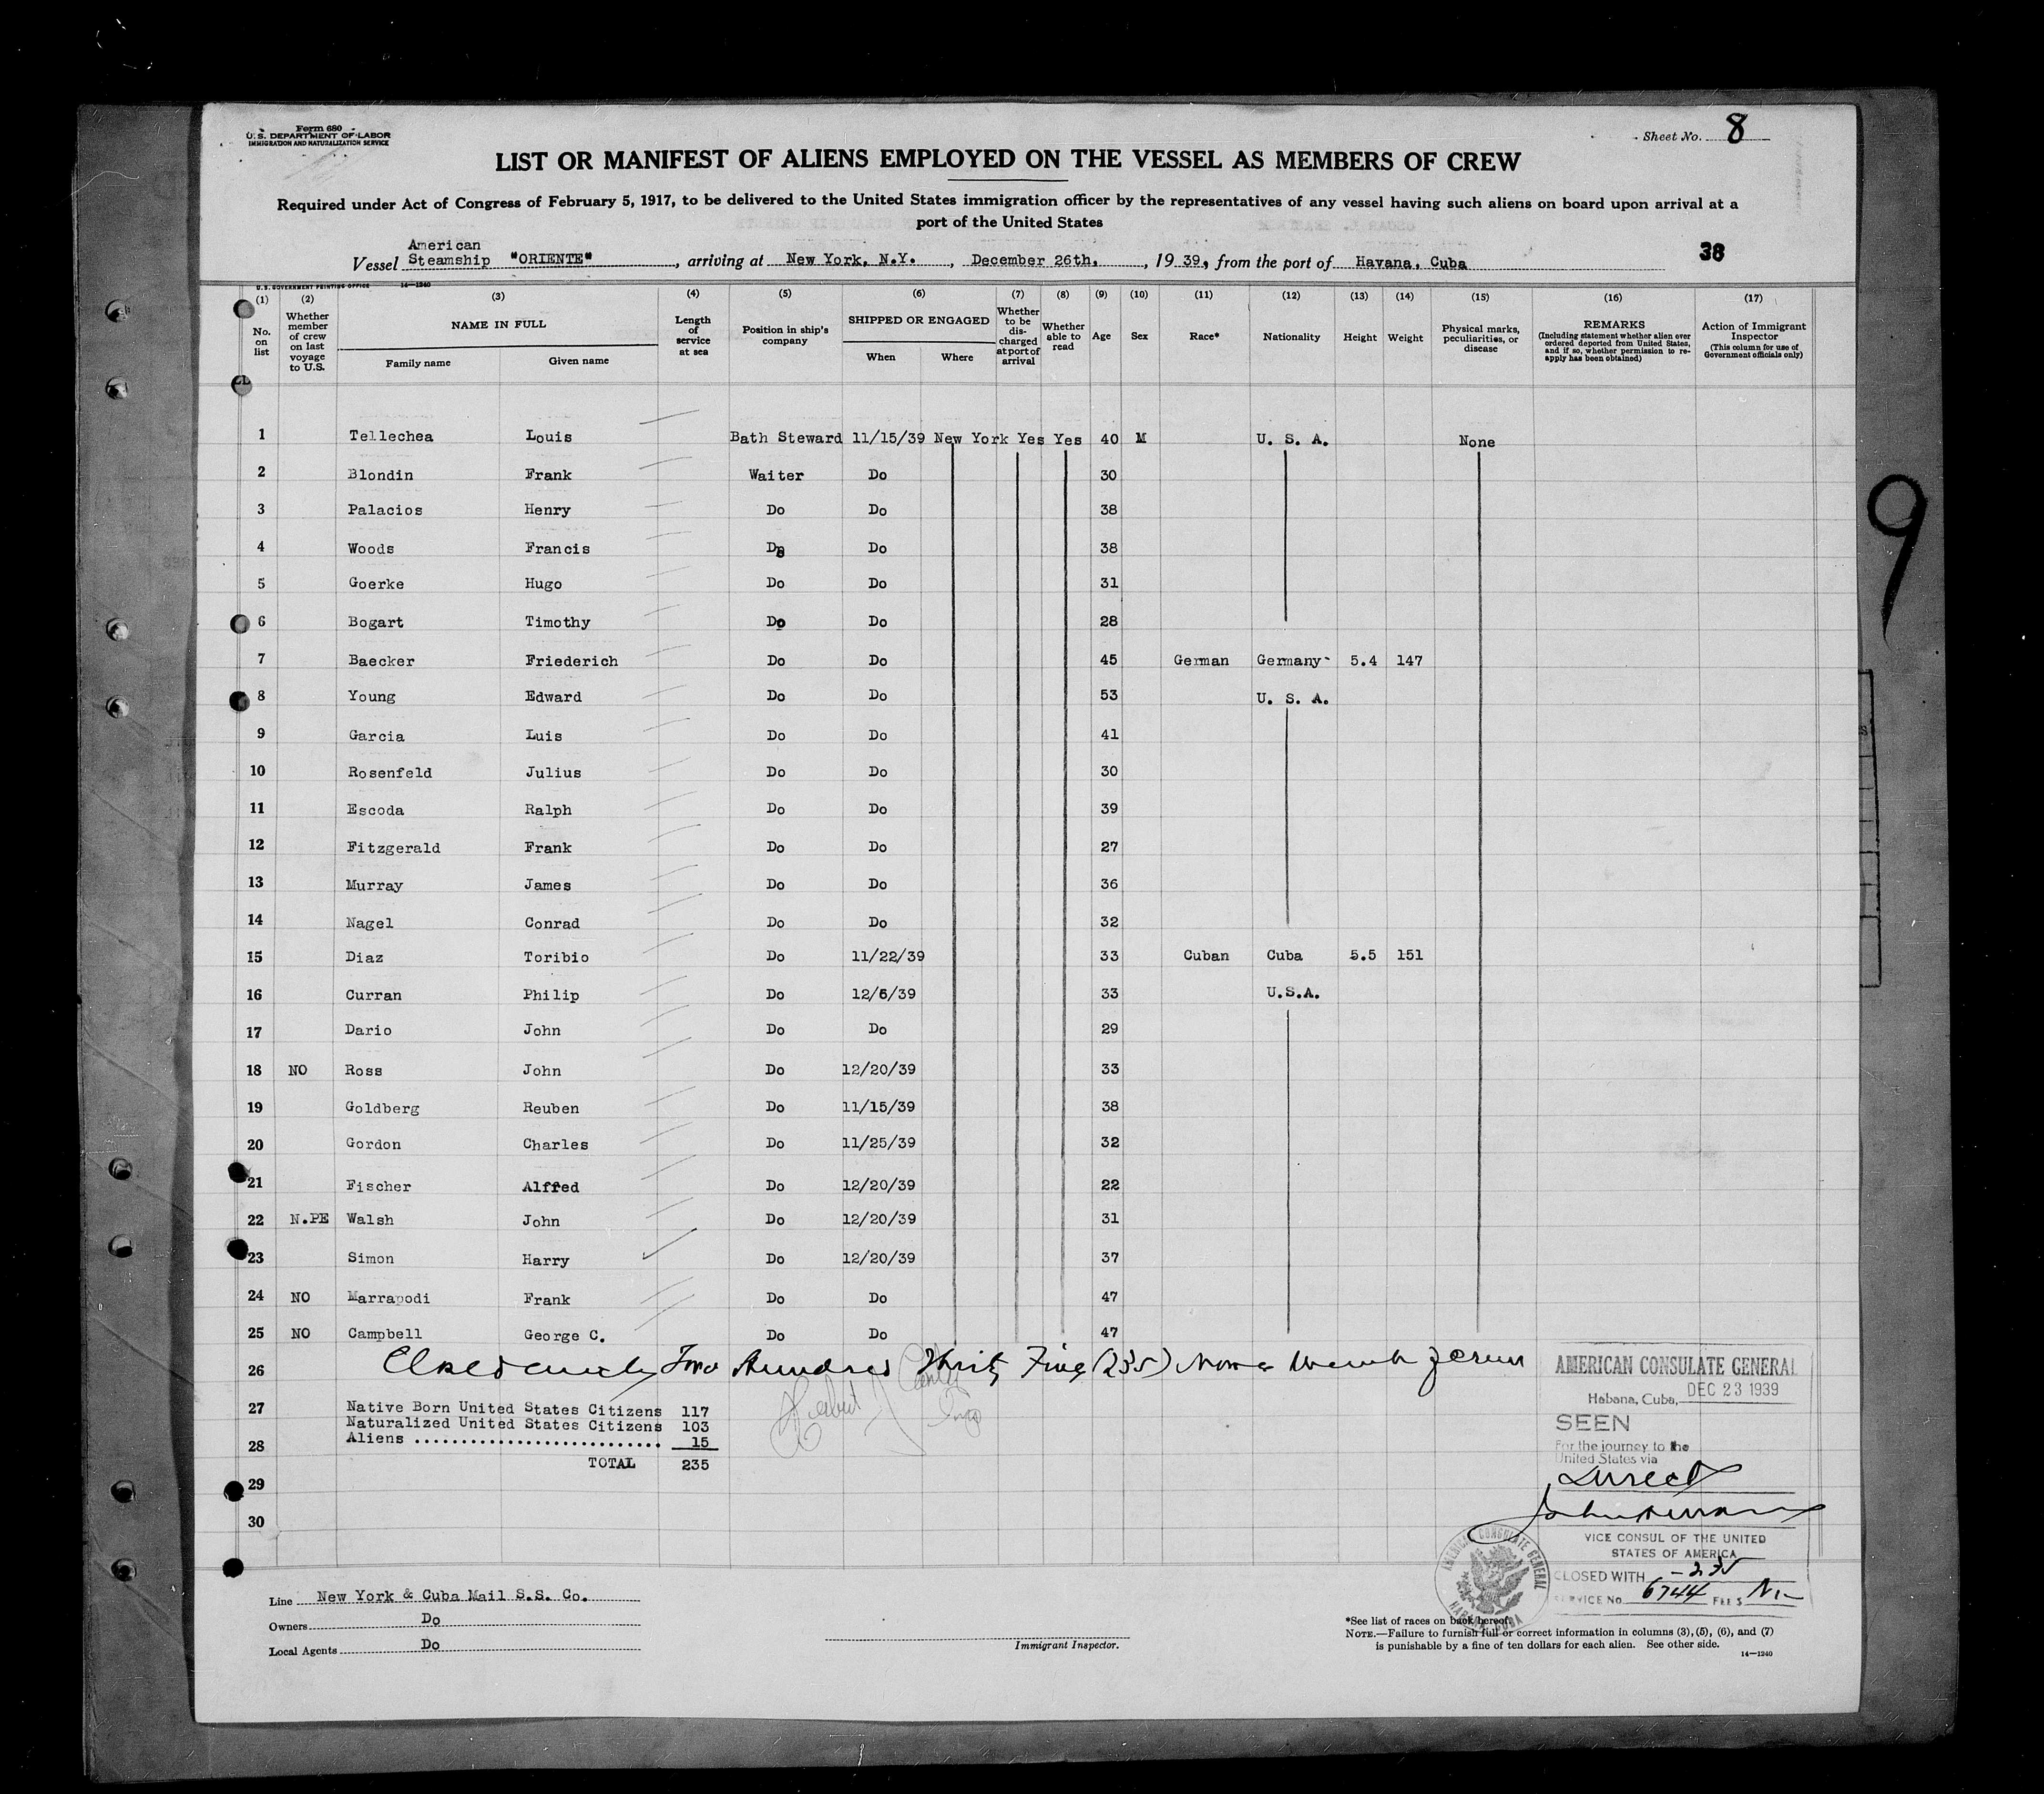 Form 680
U. S. DEPARTMENT OF LABOR
IMMIGRATION AND NATURALIZATION SERVICE
Sheet No. 8
LIST OR MANIFEST OF ALIENS EMPLOYED ON THE VESSEL AS MEMBERS OF CREW
Required under Act of Congress of February 5, 1917, to be delivered to the United States immigration officer by the representatives of any vessel having such aliens on board upon arrival at a
port of the United States
American
Vessel Steamship "ORIENTE", arriving at New York, N.Y., December 26th, , 19 39, from the port of Havana, Cuba
38
U. S. GOVERNMENT PRINTING OFFICE 14—1240
(1) No. on list
(2) Whether member of crew on last voyage to U.S.
(3) NAME IN FULL
Family name Given name
(4) Length of service at sea
(5) Position in ship's company
(6) SHIPPED OR ENGAGED
When Where
(7) Whether to be discharged at port of arrival
(8) Whether able to read
(9) Age
(10) Sex
(11) Race*
(12) Nationality
(13) Height
(14) Weight
(15) Physical marks, peculiarities, or disease
(16) REMARKS (Including statement whether alien ever ordered deported from United States, and if so, whether permission to reapply has been obtained)
(17) Action of Immigrant Inspector (This column for use of Government officials only)
1 Tellechea Louis Bath Steward 11/15/39 New York Yes Yes 40 M U. S. A. None
2 Blondin Frank Waiter Do 30
3 Palacios Henry Do Do 38
4 Woods Francis Do Do 38
5 Goerke Hugo Do Do 31
6 Bogart Timothy Do Do 28
7 Baecker Friederich Do Do 45 German Germany 5.4 147
8 Young Edward Do Do 53 U. S. A.
9 Garcia Luis Do Do 41
10 Rosenfeld Julius Do Do 30
11 Escoda Ralph Do Do 39
12 Fitzgerald Frank Do Do 27
13 Murray James Do Do 36
14 Nagel Conrad Do Do 32
15 Diaz Toribio Do 11/22/39 33 Cuban Cuba 5.5 151
16 Curran Philip Do 12/6/39 33 U.S.A.
17 Dario John Do Do 29
18 NO Ross John Do 12/20/39 33
19 Goldberg Reuben Do 11/15/39 38
20 Gordon Charles Do 11/25/39 32
21 Fischer Alfred Do 12/20/39 22
22 N.PE Walsh John Do 12/20/39 31
23 Simon Harry Do 12/20/39 37
24 NO Marrapodi Frank Do Do 47
25 NO Campbell George C. Do Do 47
26 Two Hundred Thirty Five (235)
27 Native Born United States Citizens 117
Naturalized United States Citizens 103
28 Aliens ........................... 15
TOTAL 235
29
30
AMERICAN CONSULATE GENERAL
Habana, Cuba, DEC 23 1939
SEEN
For the journey to the
United States via
Direct
VICE CONSUL OF THE UNITED
STATES OF AMERICA
CLOSED WITH -235
SERVICE No. 6744 FEE $
AMERICAN CONSULATE GENERAL
HABANA, CUBA
Line New York & Cuba Mail S.S. Co.
Owners Do
Local Agents Do
Immigrant Inspector.
*See list of races on back hereof.
NOTE.—Failure to furnish full or correct information in columns (3), (5), (6), and (7)
is punishable by a fine of ten dollars for each alien. See other side.
14—1240
9